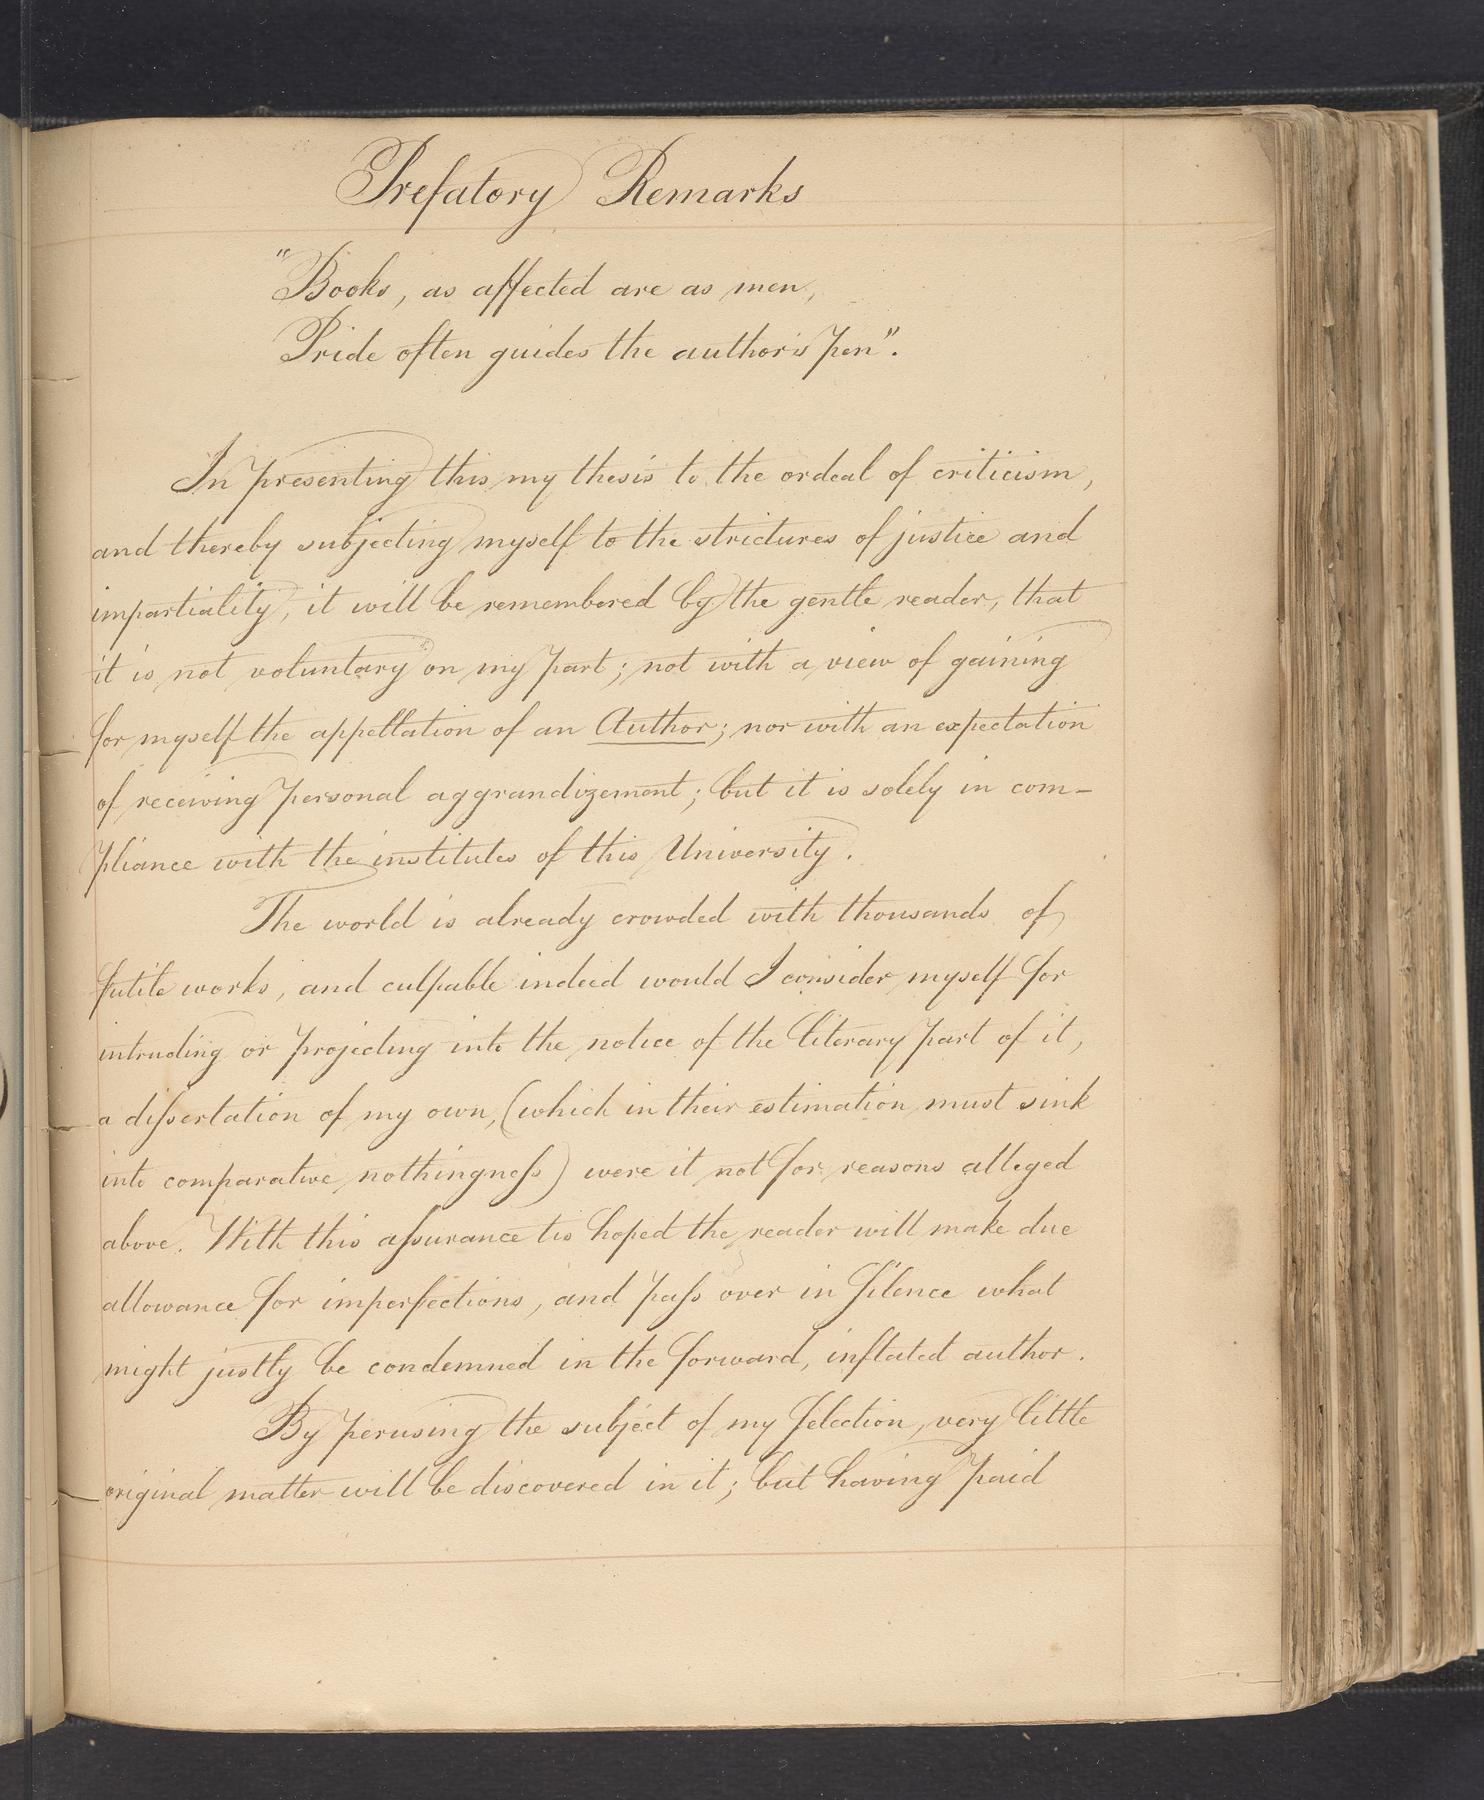 Prefatory Remarks
"Books, as affected are as men,
Pride often guides the author's pen".
In presenting this my thesis to the ordeal of criticism,
and thereby subjecting myself to the strictures of justice and
impartiality, it will be remembered by the gentle reader, that
it is not voluntary on my part; not with a view of gaining
for myself the appellation of an Author; nor with an expectation
of receiving personal aggrandizement; but it is solely in com-
pliance with the institutes of this University.
The world is already crowded with thousands of
futile works, and culpable indeed would I consider myself for
intruding or projecting into the notice of the literary part of it,
a dissertation of my own, (which in their estimation must sink
into comparative nothingness) were it not for reasons alleged
above. With this assurance tis hoped the reader will make due
allowance for imperfections, and pass over in silence what
might justly be condemned in the forward, inflated author.
By perusing the subject of my selection, very little
original matter will be discovered in it; but having paid